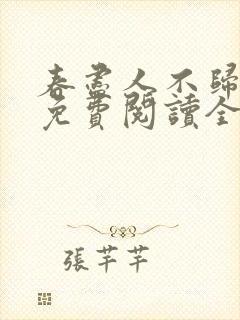 春盡人不歸
免費閱讀全
張芊芊